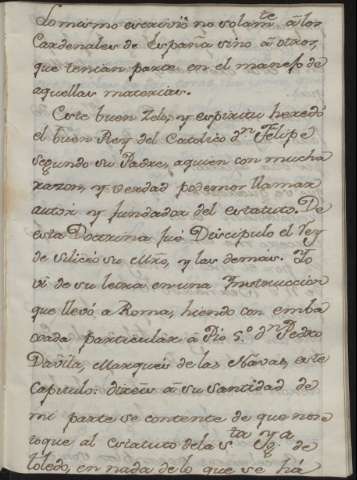 Lo mismo escrivió no solam.te á los
Cardenales de España sino á otros,
que tenian parte en el manejo de
aquellas materias.
Este buen zelo, y espiritu heredó
el buen Rey del Catolico d.n Felipe
segundo su Padre, aquien con mucha
razon, y verdad podemos llamar
autor y fundador del estatuto. De
esta Doctrina fué Discipulo el
de su Mro, y las demás. Yo
vi de su letra en una Instruccion
que llevó a Roma, hiendo con emba
xada particular á Pio 5.º d.n Pedro
Davila, Marqués de las Navas, este
Capitulo: direis á su santidad de
mi parte se contente de que no se
toque al estatuto de la s.ta Yg.a de
toledo, en nada de lo que se há